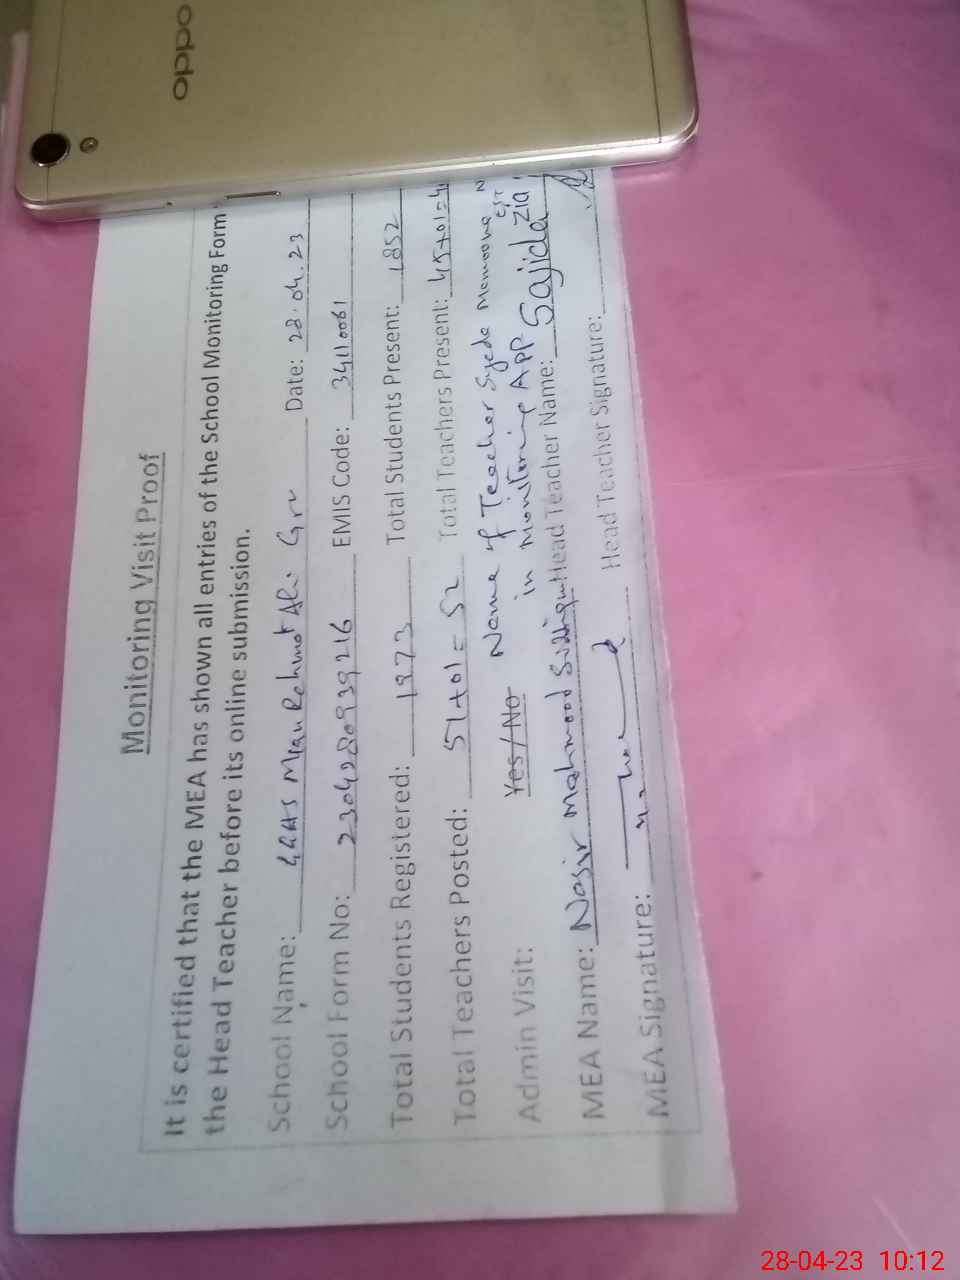 oppo
Monitoring Visit Proof
It is certified that the MEA has shown all entries of the School Monitoring Form
the Head Teacher before its online submission.
School Name: Mian Rehmat Ali Grw Date: 28.04.23
School Form No: 2304280939216 EMIS Code: 34110061
Total Students Registered: Total Students Present: 1852
Total Teachers Posted: 51+01=52 Total Teachers Present: 45+01=4
Admin Visit: Yes/No Name of Teacher Syeda Memoona
in Monitoring App
MEA Name: Nasir Mahmood Head Teacher Name: Sajida Zia
MEA Signature: Head Teacher Signature:
28-04-23 10:12